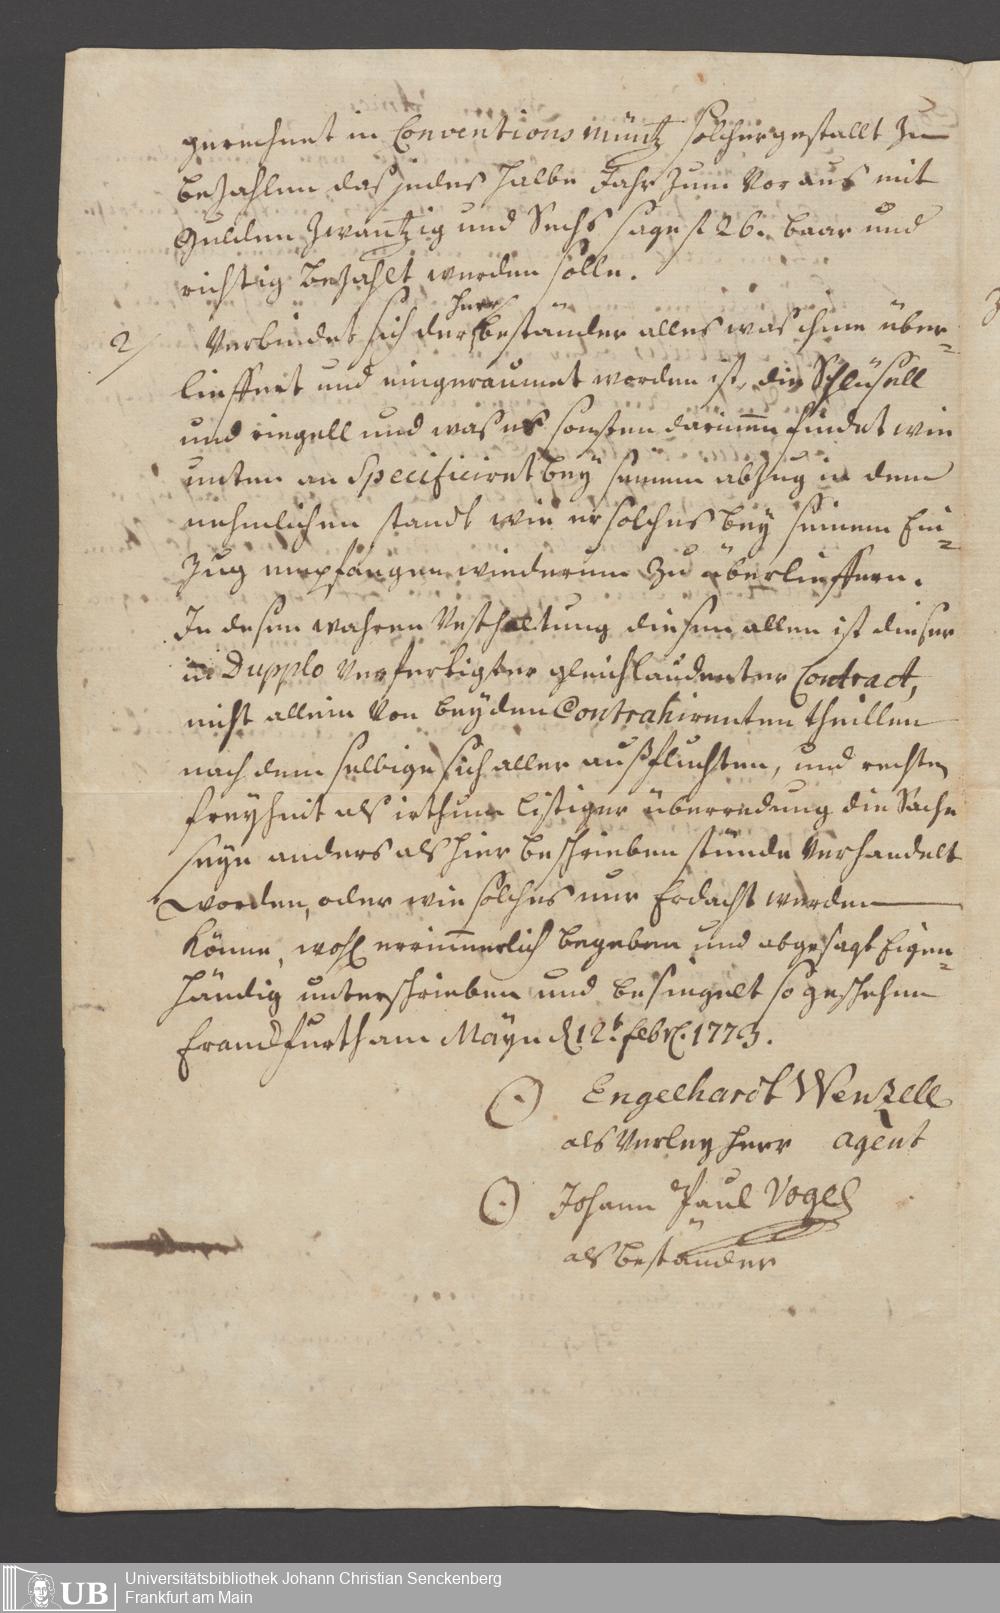 gerechnet in Conventions müntz solchergestallt zu
bezahlen das jedes halbe Jahr zum Voraus mit
Gulden Zwantzig und Sechs sage f 26. baar und
richtig bezahlt werden solle.
2/ Verbindet sich der Herr beständer alles was ihme über=
lieffert und eingeraumet worden ist, die Schlüsell
und riegell und was es sonsten darinnen findet wie
unten an Specificiret bey seinem abzug in dem
nehmlichen standt wie er solches bey seinem Ein=
zug empfangen wiederum zu überlieffern.
In desen wahren Vesthaltung diesem allen ist dieser
in Dupplo Verfertigter gleichlaudenter Contract,
nicht allein Von beyden Contrahirenten theillen
nach dem selbige sich aller außfluchten, und rechten
freyheit als irthum listiger überredung die Sache
seye anders als hier beschrieben stünde Verhandelt
worden, oder wie solches nur Erdacht werden
könne, wohl errinnerlich begeben und abgesagt Eigen=
händig unterschrieben und besiegelt so geschehen
Franckfurth am Mayn d 12t Febr. 1773.
Engelhardt Wenzell
als Verleyherr agent
Johann Paul Vogel
als beständer
UB
Universitätsbibliothek Johann Christian Senckenberg
Frankfurt am Main